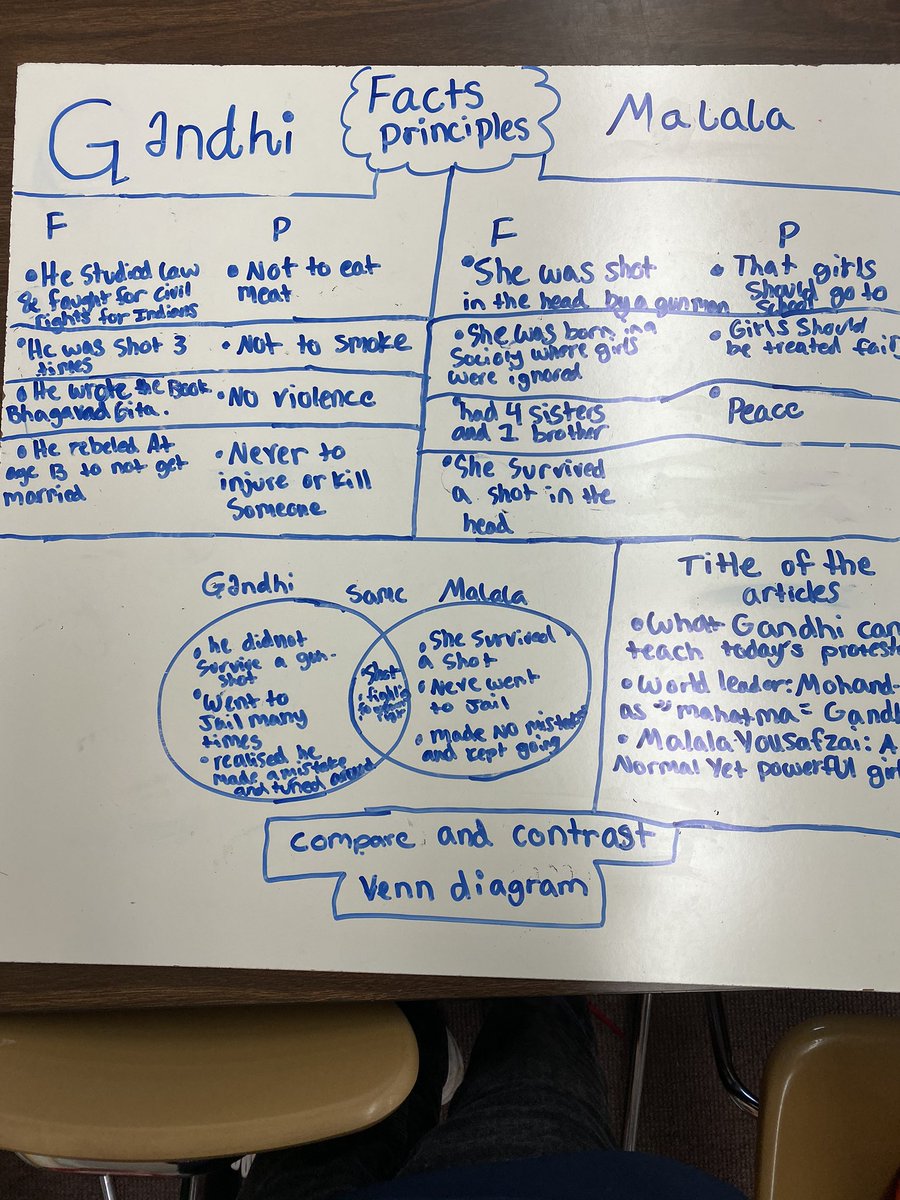 Gandhi
Facts
principles
Malala
F
P
• He studied law
& fought for civil
rights for Indians
• Not to eat
meat
• He was shot 3
times
• Not to smoke
• He wrote the Book
Bhagavad Gita.
• No violence
• He rebeled At
age 13 to not get
married
• Never to
injure or kill
Someone
F
P
• She was shot
in the head by a gunman
• That girls
should go to
school
• She was born in a
Socioly where girls
were ignored
• Girls should
be treated fair
• had 4 sisters
and 1 brother
• Peace
• She survived
a shot in the
head
Gandhi
Same
Malala
• he didnot
survive a gun-
shot
• Went to
Jail many
times
• realised he
made a mistake
and turned
Shot
• She survived
a shot
• Neve went
to Jail
• made NO mistake
and kept going
Title of the
articles
• What Gandhi can
teach today's protest
• World leader: Mohand-
as "mahatma" Gandh
• Malala Yousafzai: A
Normal Yet powerful girl
compare and contrast
Venn diagram